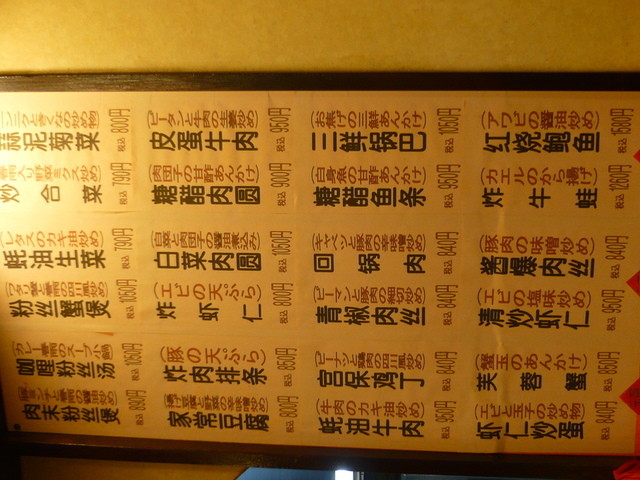 蒜泥菊菜
税込 800円
炒合菜
税込 790円
レタスのカキ油炒め)
蚝油生菜
税込 790円
粉丝蟹煲
税込 1050円
咖喱粉丝汤
税込 1050円
肉末粉丝煲
税込 890円
(ピータンと牛肉の生姜炒め)
皮蛋牛肉
税込 950円
(肉団子の甘酢あんかけ)
糖醋肉圆
税込 900円
(白菜と肉団子の醤油煮込み)
白菜肉圆
税込 1050円
(エビの天ぷら)
炸虾仁
税込 800円
(豚の天ぷら)
炸肉排条
税込 850円
家常豆腐
税込 800円
(お焦げの三鮮あんかけ)
三鲜锅巴
税込 1050円
(白身魚の甘酢あんかけ)
糖醋鱼条
税込 950円
(キャベツと豚肉の辛味噌炒め)
回锅肉
税込 840円
(ピーマンと豚肉の細切り炒め)
青椒肉丝
税込 840円
(ピーナッツと鶏肉の四川風炒め)
宫保鸡丁
税込 840円
(牛肉のカキ油炒め)
蚝油牛肉
税込 950円
(アワビの醤油炒め)
红烧鲍鱼
税込 1580円
(カエルのから揚げ)
炸牛蛙
税込 1260円
(豚肉の味噌炒め)
酱爆肉丝
税込 840円
(エビの塩味炒め)
清炒虾仁
税込 950円
(蟹玉のあんかけ)
芙蓉蟹
税込 850円
(エビと玉子の炒め物)
虾仁炒蛋
税込 840円